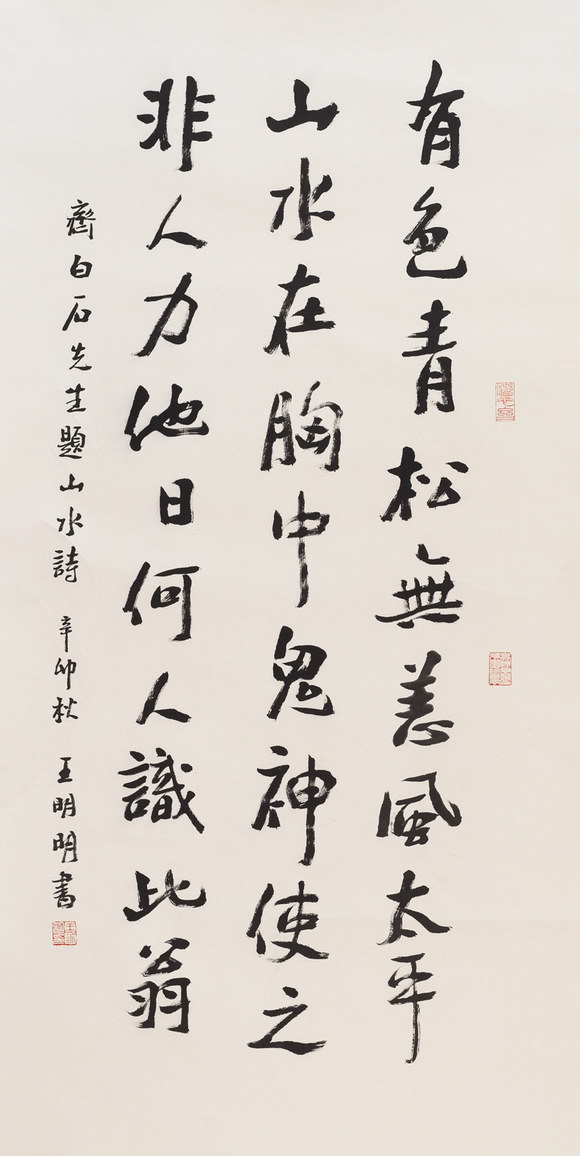 有色青松無恙風太平
山水在胸中鬼神使之
非人力他日何人識此翁
齊白石先生題山水詩 辛卯秋 王明明書